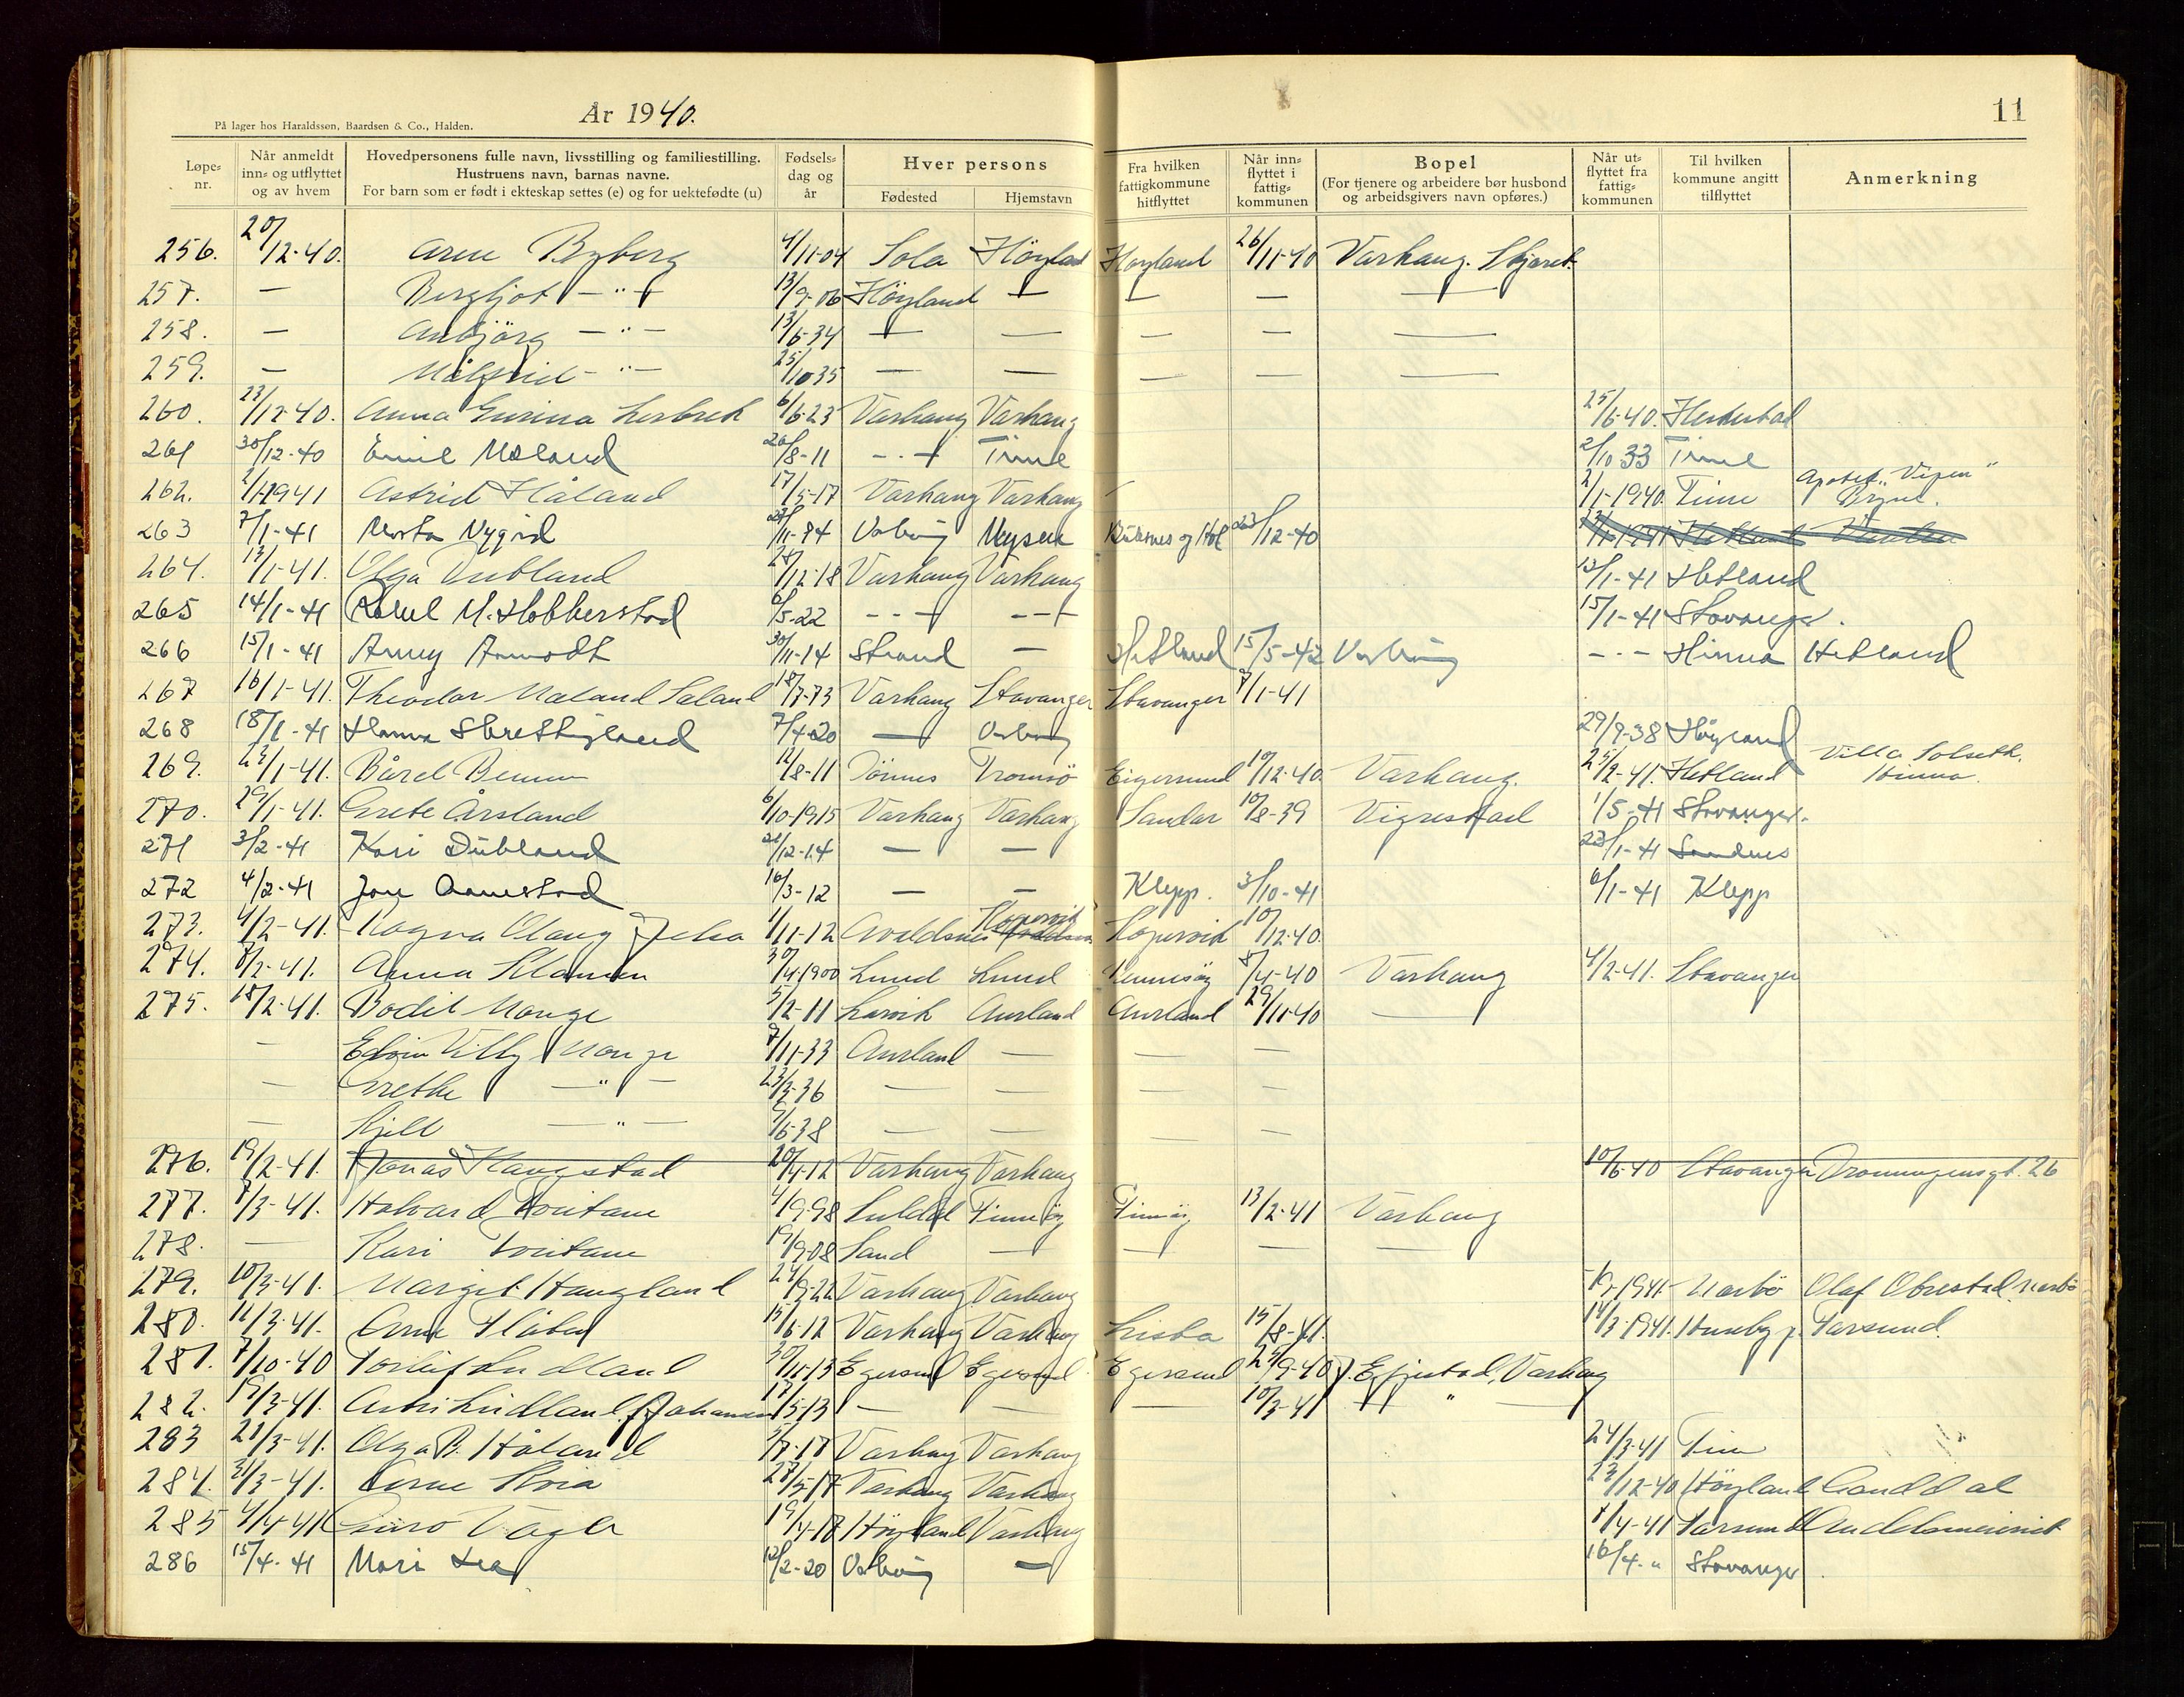 År 1940.
På lager hos Haraldsson, Baardsen & Co., Halden.
11
Løpe-nr. | Når anmeldt inn- og utflyttet og av hvem | Hovedpersonens fulle navn, livsstilling og familiestilling. Hustruens navn, barnas navne. For barn som er født i ekteskap settes (e) og for uektefødte (u) | Fødsels-dag og år | Hver persons Fødested | Hjemstavn | Fra hvilken fattigkommune hitflyttet | Når inn-flyttet i fattig-kommunen | Bopel (For tjenere og arbeidere bør husbond og arbeidsgivers navn opføres.) | Når ut-flyttet fra fattig-kommunen | Til hvilken kommune angitt tilflyttet | Anmerkning
256. 20/12-40. Arne Byberg 4/11-04 Sola Höyland Höyland 26/11-40 Varhaug.
257. — Bergljot —"— 13/9-06 Höyland — — — —
258. — Anbjörg —"— 13/6-34 — — — — —
259. — Målfrid —"— 25/10 35 — — — — —
260. 23/12-40. Anna Gurina 6/6-23 Varhaug Varhaug 25/6-40.
261 30/12-40 Emil Mæland 26/8-11 —"— Time 2/10 33 Time
262. 2/1-1941 Astrid Håland 17/5-17 Varhaug Varhaug 2/1-1940. Time Apotek "Vipen" Bryne.
263 7/1-41 11-84 Varhaug 23/12-40
264. 13/1-41. Olga Dubland 28/12-18 Varhaug Varhaug 13/1-41 Hetland
265 14/1-41 Rakel M. Hobberstad 6/5-22 —"— —"— 15/1-41 Stavanger.
266 15/1-41 Anny 30/11-14 Strand — Hetland 15/5-42 Varhaug —"— Hinna Hetland
267 16/1-41. Theodor Maland 18/7-73 Varhaug Stavanger Stavanger 7/1-41
268 18/1-41 Hanna 7/4-20 — Varhaug 29/9-38 Höyland
269. 23/1-41. Bård 12/8-11 Tromsö Eigersund 10/12-40. Varhaug. 25/2-41. Hetland Villa Solseth, Hinna.
270. 29/1-41. Grete Årsland 6/10-1915 Varhaug Varhaug Sandar 10/8-39 Vigrestad 1/5-41 Stavanger.
271 3/2-41 Kari Dubland 21/12-14 — — 23/1-41 Sandnes
272 4/2-41 Aanestad 16/3-12 — — Klepp. 3/10-41 6/1-41 Klepp
273. 4/2-41. Magna Olaug 1/11-12 Avaldsnes Kopervik Kopervik 10/12-40.
274. 8/2-41. Anna 30/4-1900 Lund Lund 8/4-40 Varhaug 4/2-41. Stavanger
275. 18/2-41. Bodil Monge 5/2-11 Larvik Aurland Aurland 29/11-40 —
— Edvin Villy Monge 7/11-33 Aurland — — —
— Grethe —"— 23/3-36 — — — —
— Kjell —"— 9/6-38 — — — —
276. 19/2-41. Jonas Haugstad 20/4-12 Varhaug Varhaug 10/6-40 Stavanger Dronningensgt. 26
277. 7/3-41. Halvard 4/9-98 Suldal Finnöy Finnöy 13/2-41 Varhaug
278. — Kari 19/9-08 Sand — — — —
279. 10/3-41. Margit Haugland 24/9-22 Varhaug Varhaug 1941 Narbö Olaf Obrestad, Narbö
280. 11/3-41. Arne 15/6-12 Varhaug Varhaug Lista 15/8-41. 14/3-1941. Huseby p. Farsund.
281. 7/10-40 Torleif Lindland 30/11-13 Egersund Egersund Egersund 25/9-40 Varhaug
282. 19/3-41. Lindland 17/5-13 — — — 10/3-41 —"—
283 21/3-41. Olga B. Håland 5/7-17 Varhaug Varhaug 24/3-41 Time
284. 31/3-41. Arne 27/5-17 Varhaug Varhaug 23/12-40 Höyland Ganddal
285 4/4-41 Guro 19/4-18 Höyland Varhaug 8/4-41 Farsund Andelsmeieriet
286 15/4-41 Mari Lea 12/2-20 Varhaug — 16/4-" Stavanger.